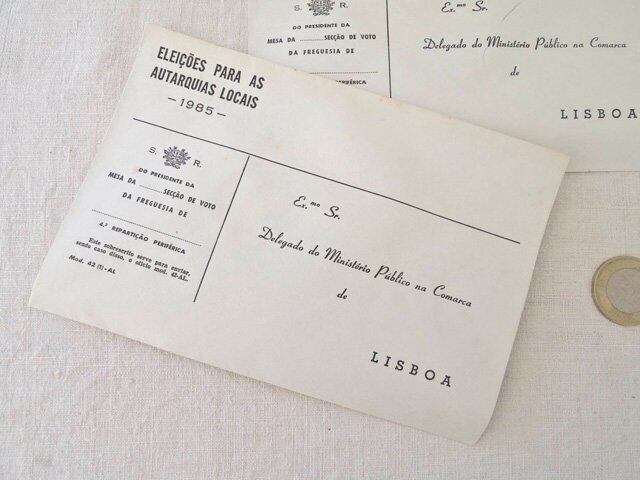 ELEIÇÕES PARA AS
AUTARQUIAS LOCAIS
—1985—
S. R.
DO PRESIDENTE DA
MESA DA ............SECÇÃO DE VOTO
DA FREGUESIA DE
4.ª REPARTIÇÃO PERIFÉRICA
Este sobrescrito serve para enviar,
sendo caso disso, o ofício mod. 42-AL.
Mod. 42 (1)-AL
Ex.mo Sr.
Delegado do Ministério Público na Comarca
de
LISBOA
S. R.
DO PRESIDENTE DA
MESA DA ............SECÇÃO DE VOTO
DA FREGUESIA DE
Ex.mo Sr.
Delegado do Ministério Público na Comarca
de
LISBOA